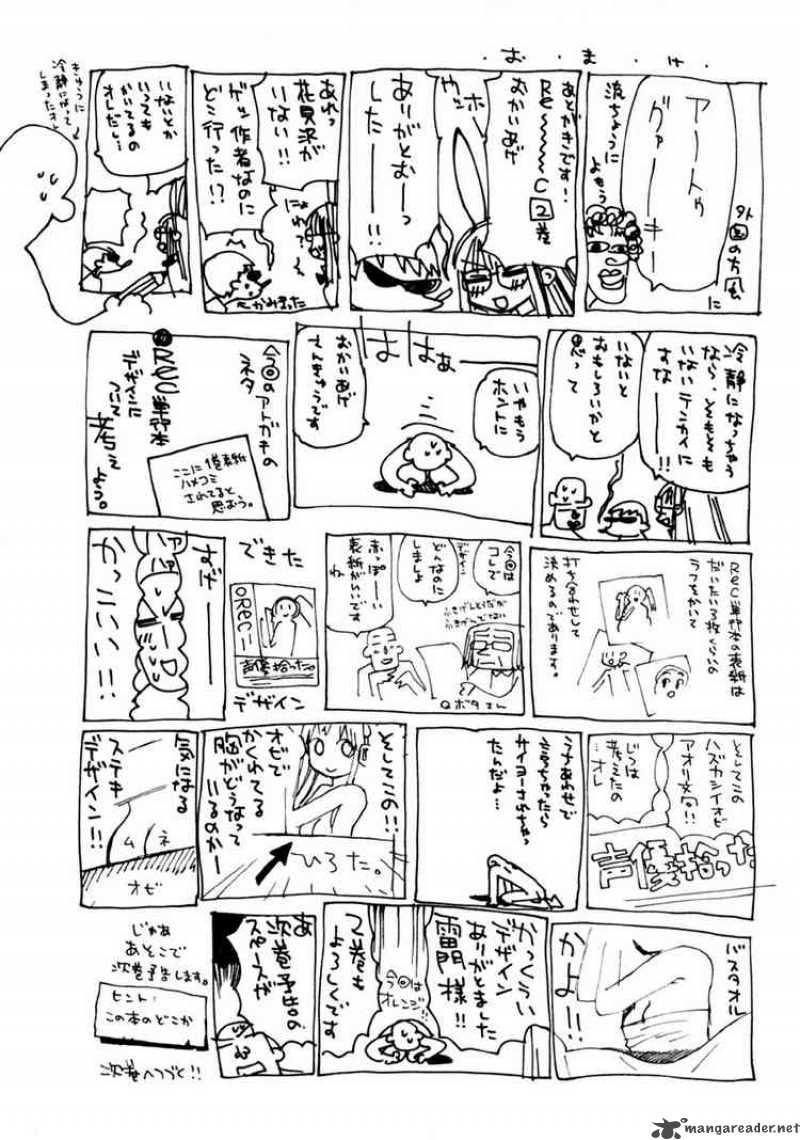 お・ま・け・
アートゥ
グァーキー
外国の方風に
波ちょうに
よもう
あとがきです!
REC2巻
おかいあげ
ホヒャッ
ありがとむーっ
したーー!!
あれっ
花見沢が
いない!!
ゲッ作者なのに
どこ行った!?
にょわ〜
←かみきった
いないとか
いっても
かいてるの
オレだし…
きゅうに
冷静になって
しまったオレ
冷静になっちゃう
なら、ともとも
いないテンカイに
すなーー
いないと
おもしろいかと
思って
いやもう
ホントに
おかいあげ
さんきゅうです
ははぁー
今回のアトガキの
ネタ
REC単行本
デザインに
ついて
考えよう。
ここに1巻表紙
ハメコミ
されてると
思おう。
REC単行本の表紙は
だいたい3枚くらいの
ラフをかいて
打ち合わせして
決めるのであります。
今回は
コレで
デザイン
どんなのに
しましょ
赤っぽーい
表紙がいいです
ね
ふきげんとうだが
ふきげんでない
クボタさん
できた
REC
声優拾った。
デザイン
すげーー
かっこいい!!
そしてこの
ハズカシイオビ
アオリ文句!!
じつは
考えたの
…オレ
声優拾った
うちあわせで
言っちゃったら
サイヨーされちゃっ
たんだよ…
そしてこの!!
オビで
かくれてる
胸がどうなって
いるのかー
ひろた。
気になる
ステキ
デザイン!!
ムネ
オビ
バスタオル
かよー!!
かっくうぃい
デザイン
ありがとました
雷門様!!
今回は
オレンジ!!
2巻も
よろしくです
あ
次巻予告の
スペースが
じゃあ
あそこで
次巻予告します。
ヒント:
この本のどこか
次巻へつづく!!
mangareader.net